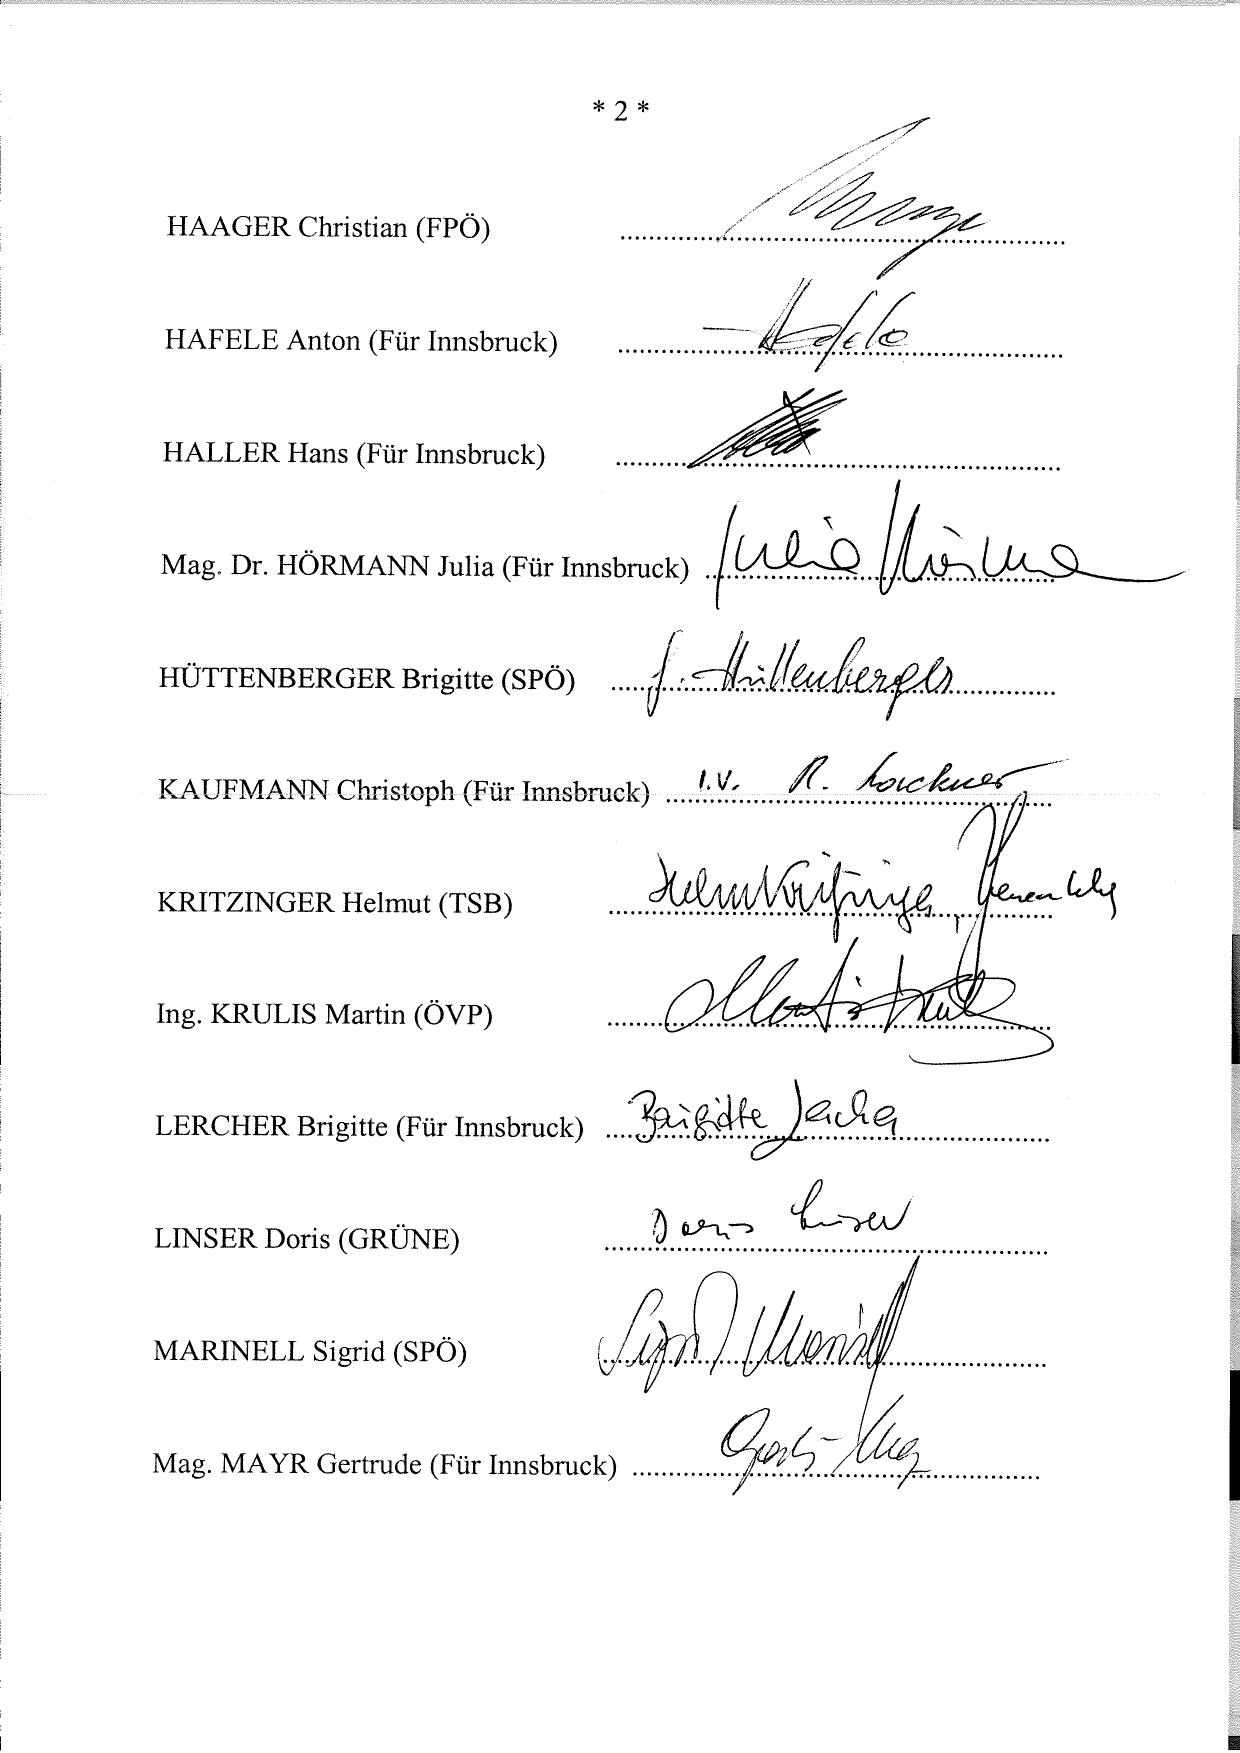 * 2 *
HAAGER Christian (FPÖ) ................
HAFELE Anton (Für Innsbruck) Hafele
HALLER Hans (Für Innsbruck)
Mag. Dr. HÖRMANN Julia (Für Innsbruck) Julia Hörmann
HÜTTENBERGER Brigitte (SPÖ) Hüttenberger
KAUFMANN Christoph (Für Innsbruck) i.V. R. Lackner
KRITZINGER Helmut (TSB) Helmut Kritzinger
Ing. KRULIS Martin (ÖVP) Martin Krulis
LERCHER Brigitte (Für Innsbruck) Brigitte Lercher
LINSER Doris (GRÜNE) Doris Linser
MARINELL Sigrid (SPÖ) Sigrid Marinell
Mag. MAYR Gertrude (Für Innsbruck)